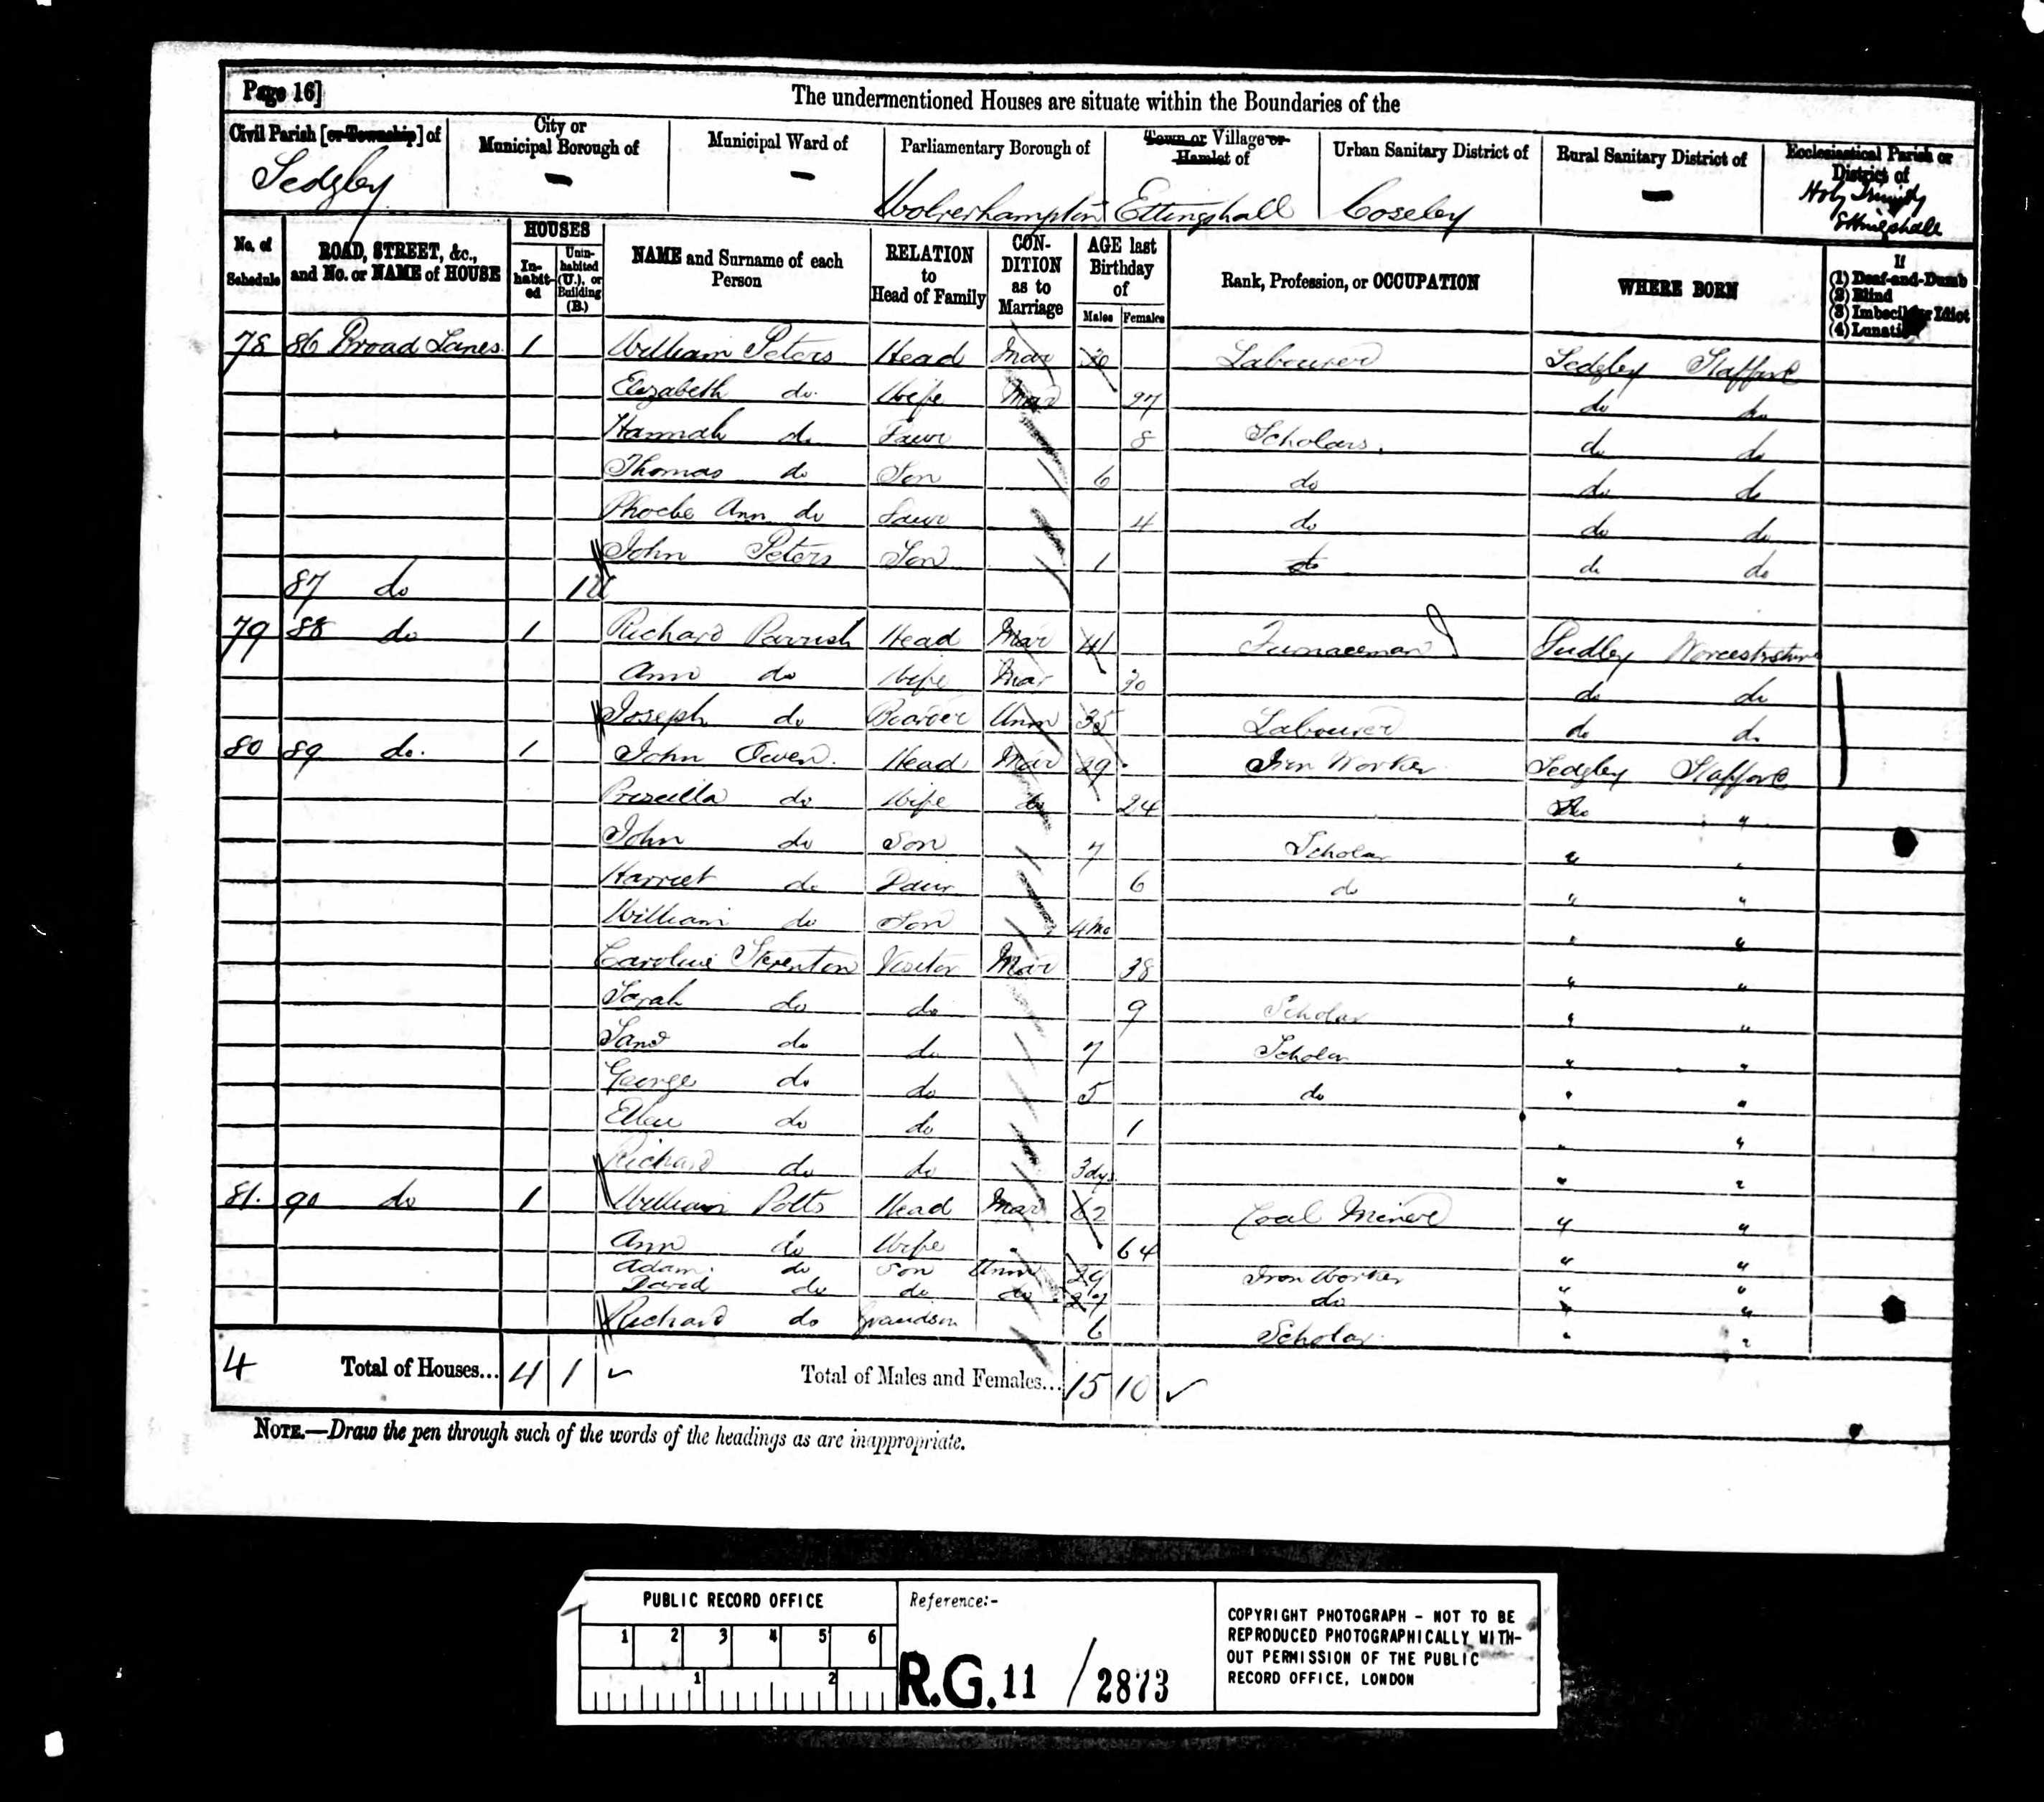 Page 16]
The undermentioned Houses are situate within the Boundaries of the
Civil Parish [or Township] of
City or Municipal Borough of
Municipal Ward of
Parliamentary Borough of
Town or Village or Hamlet of
Urban Sanitary District of
Rural Sanitary District of
Ecclesiastical Parish or District of
Sedgley - - Wolverhampton Ettingshall Coseley - Holy Trinity Ettingshall
No. of Schedule
ROAD, STREET, &c., and No. or NAME of HOUSE
HOUSES
Inhabited
Uninhabited (U.), or Building (B.)
NAME and Surname of each Person
RELATION to Head of Family
CONDITION as to Marriage
AGE last Birthday of
Males Females
Rank, Profession, or OCCUPATION
WHERE BORN
If
(1) Deaf-and-Dumb
(2) Blind
(3) Imbecile or Idiot
(4) Lunatic
78 86 Broad Lanes 1 William Peters Head Mar Labourer Sedgley Stafford
Elizabeth do Wife Mar 27 do do
Hannah do Daur 8 Scholars do do
Thomas do Son 6 do do do
Phoebe Ann do Daur 4 do do do
John Peters Son 1 do do do
87 do 1U
79 88 do 1 Richard Parrish Head Mar 41 Furnaceman Dudley Worcestershire
Ann do Wife Mar 30 do do
Joseph do Boarder Unm 35 Labourer do do
80 89 do. 1 John Owen Head Mar 29 Iron Worker Sedgley Stafford
Priscilla do Wife do 24 do "
John do Son 7 Scholar " "
Harriet do Daur 6 do " "
William do Son 4 Mo " "
Caroline Visitor Mar 38 " "
Sarah do do 9 Scholar " "
do do 7 Scholar " "
George do do 5 do " "
Ellen do do 1 " "
Richard do do 3dys " "
81. 90 do 1 William Potts Head Mar 62 Coal Miner " "
Ann do Wife " 64 " "
Adam do Son Unm 29 Iron Worker " "
David do do do 27 do " "
Richard do Grandson 6 Scholar " "
4 Total of Houses... 4 1 ✓ Total of Males and Females... 15 10 ✓
NOTE.—Draw the pen through such of the words of the headings as are inappropriate.
PUBLIC RECORD OFFICE
1 2 3 4 5 6
1 2
Reference:-
R.G. 11 / 2873
COPYRIGHT PHOTOGRAPH - NOT TO BE
REPRODUCED PHOTOGRAPHICALLY WITH-
OUT PERMISSION OF THE PUBLIC
RECORD OFFICE, LONDON